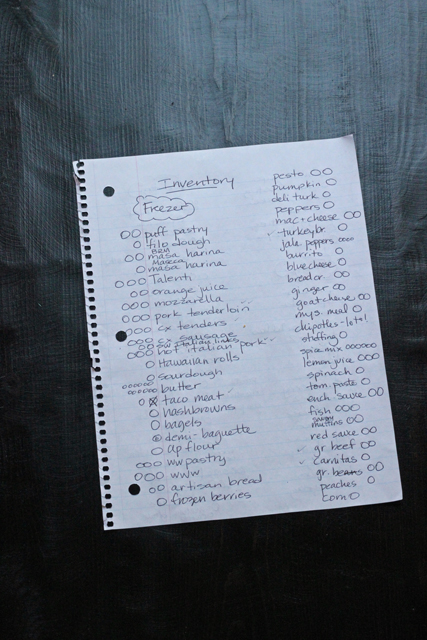 Inventory
Freezer
puff pastry
filo dough
masa harina
Maseca
masa harina
Talenti
orange juice
mozzarella
pork tenderloin
cx tenders
cx sausage
hot italian pork
Hawaiian rolls
sourdough
butter
taco meat
hashbrowns
bagels
demi-baguette
ap flour
ww pastry
www
artisan bread
frozen berries
pesto
pumpkin
deli turk
peppers
mac + cheese
turkey br.
jala. peppers
burrito
blue cheese
bread or.
ginger
goat cheese
mys. meal
chipotles - lots!
stuffing
spice mix
lemon juice
spinach
tom. paste
ench. sauce
fish
muffins
red sauce
gr. beef
carnitas
gr. beans
peaches
corn